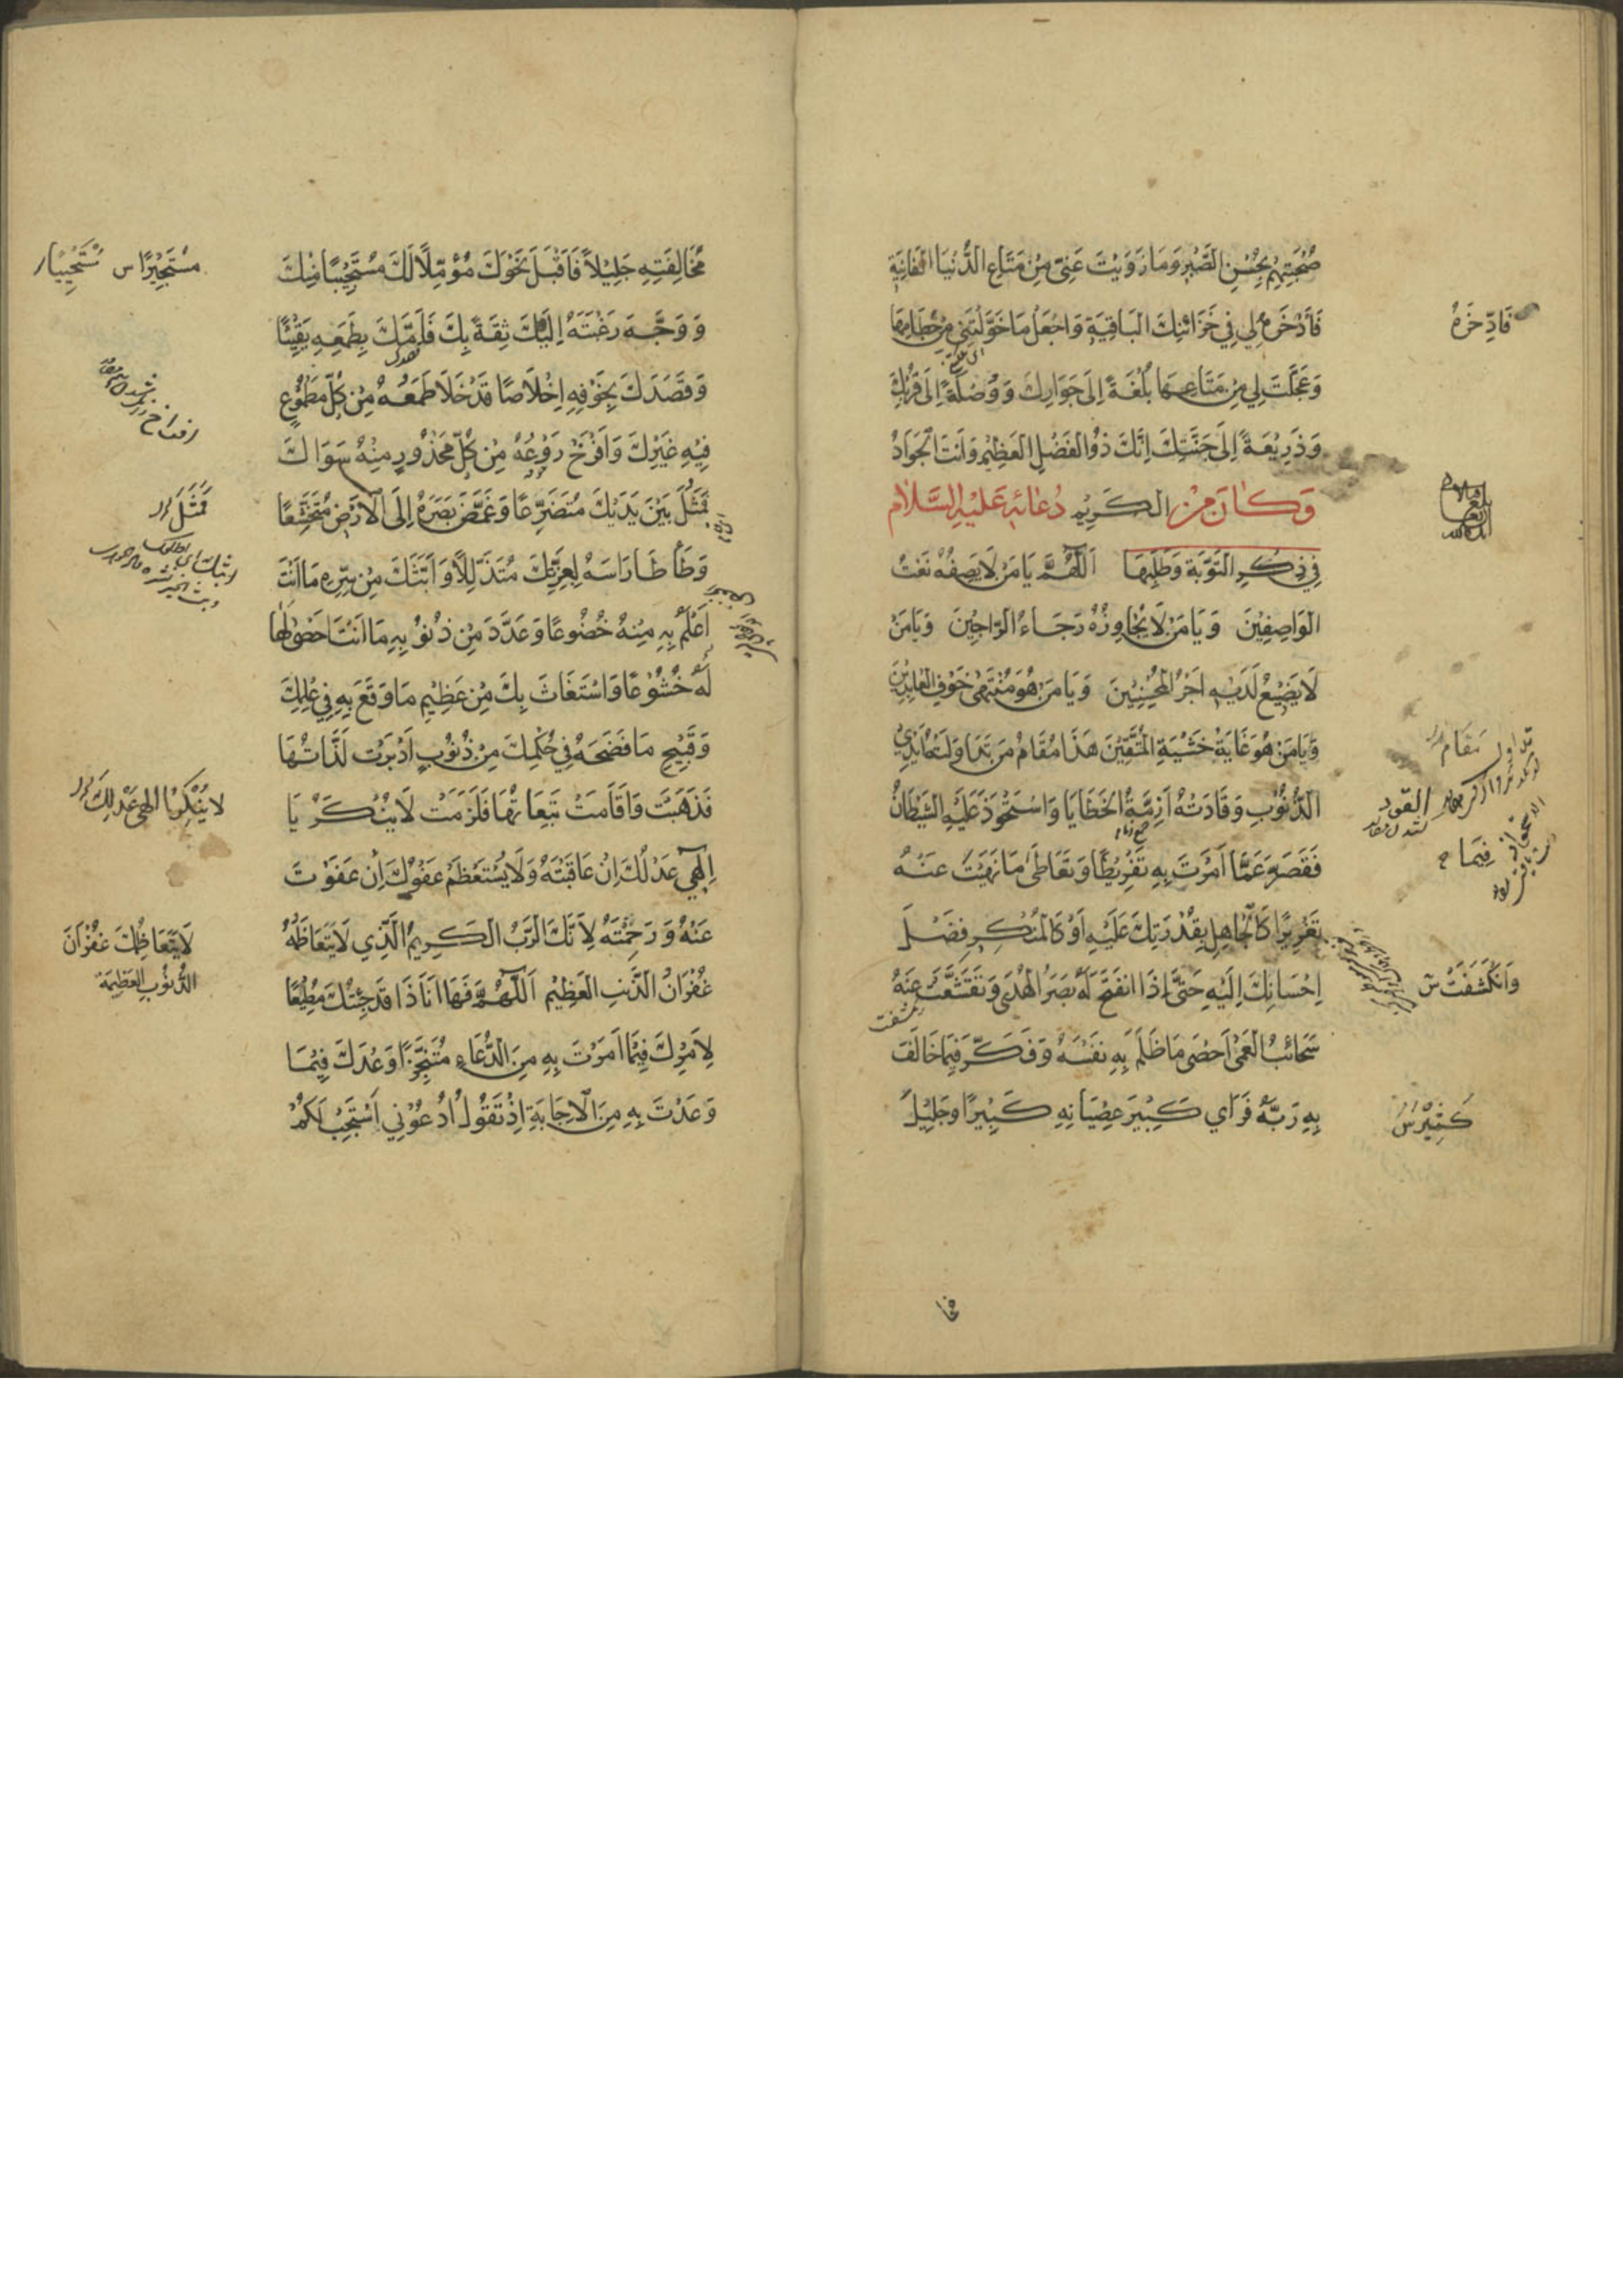 صُحْبَتِهِمْ بِحُسْنِ الصَّبْرِ وَمَا زَوَيْتَ عَنِّي مِنْ مَتَاعِ الدُّنْيَا الفَانِيَةِ
فَاذْخَرْهُ لِي فِي خَزَائِنِكَ البَاقِيَةِ وَاجْعَلْ مَا خَوَّلْتَنِي مِنْ حُطَامِهَا
وَعَجَّلْتَ لِي مِنْ مَتَاعِهَا بُلْغَةً إِلَى جِوَارِكَ وَوُصْلَةً إِلَى قُرْبِكَ
وَذَرِيْعَةً إِلَى جَنَّتِكَ اِنَّكَ ذُو الفَضْلِ العَظِيْمِ وَاَنْتَ الجَوَادُ
وَكَانَ مِنْ الكَرِيْمِ دُعَائِهِ عَلَيْهِ السَّلَام
فِي ذِكْرِ التَّوْبَةِ وَطَلَبِهَا اَللّٰهُمَّ يَا مَنْ لَا يَصِفُهُ نَعْتُ
الوَاصِفِيْنَ وَيَا مَنْ لَا يُجَاوِزُهُ رَجَاءُ الرَّاجِيْنَ وَيَا مَنْ
لَا يَضِيْعُ لَدَيْهِ اَجْرُ المُحْسِنِيْنَ وَيَا مَنْ هُوَ مُنْتَهٰى خَوْفِ العَابِدِيْنَ
وَيَا مَنْ هُوَ غَايَةُ خَشْيَةِ المُتَّقِيْنَ هَذَا مُقَامُ مَنْ تَدَاوَلَتْهُ اَيْدِي
الذُّنُوْبِ وَقَادَتْهُ اَزِمَّةُ الخَطَايَا وَاسْتَحْوَذَ عَلَيْهِ الشَّيْطَانُ
فَقَصَّرَ عَمَّا اَمَرْتَ بِهِ تَفْرِيْطًا وَتَعَاطٰى مَا نَهَيْتَ عَنْهُ
تَغْرِيْرًا كَالجَاهِلِ بِقُدْرَتِكَ عَلَيْهِ اَوْ كَالمُنْكِرِ فَضْلَ
اِحْسَانِكَ اِلَيْهِ حَتَّى اِذَا انْفَتَحَ لَهُ بَصَرُ الهُدَى وَتَقَشَّعَتْ عَنْهُ
سَحَائِبُ العَمَى اَحْصَى مَا ظَلَمَ بِهِ نَفْسَهُ وَفَكَّرَ فِيْمَا خَالَفَ
بِهِ رَبَّهُ فَرَاى كَبِيْرَ عِصْيَانِهِ كَبِيْرًا وَجَلِيْلَ
فَادَّخِرْهُ
مَقَام
العود
فِيمَا
وَانْكَشَفَتْ س
كَثِيْرَ س
مُخَالَفَتِهِ جَلِيْلاً فَاَقْبَلَ نَحْوَكَ مُؤَمِّلًا لَكَ مُسْتَحْيِيًا مِنْكَ
وَوَجَّهَ رَغْبَتَهُ اِلَيْكَ ثِقَةً بِكَ فَاَمَّكَ بِطَمَعِهِ يَقِيْنًا
وَقَصَدَكَ بِخَوْفِهِ اِخْلَاصًا قَدْ خَلَا طَمَعُهُ مِنْ كُلِّ مَطْمُوْعٍ
فِيْهِ غَيْرِكَ وَاَفْرَخَ رَوْعُهُ مِنْ كُلِّ مَحْذُوْرٍ مِنْهُ سِوَاكَ
فَمَثُلَ بَيْنَ يَدَيْكَ مُتَضَرِّعًا وَغَمَّضَ بَصَرَهُ اِلَى الْاَرْضِ مُتَخَشِّعًا
وَطَأْطَأَ رَاْسَهُ لِعِزَّتِكَ مُتَذَلِّلًا وَاَبَثَّكَ مِنْ سِرِّهِ مَا اَنْتَ
اَعْلَمُ بِهِ مِنْهُ خُضُوْعًا وَعَدَّدَ مِنْ ذُنُوْبِهِ مَا اَنْتَ اَحْصٰى لَهَا
لَهُ خُشُوْعًا وَاسْتَغَاثَ بِكَ مِنْ عَظِيْمِ مَا وَقَعَ بِهِ فِي عِلْمِكَ
وَقَبِيْحِ مَا فَضَحَهُ فِي حُكْمِكَ مِنْ ذُنُوْبٍ اَدْبَرَتْ لَذَّاتُهَا
فَذَهَبَتْ وَاَقَامَتْ تَبِعَاتُهَا فَلَزِمَتْ لَا يُنْكَرُ يَا
اِلٰهِي عَدْلُكَ اِنْ عَاقَبْتَهُ وَلَا يُسْتَعْظَمُ عَفْوُكَ اِنْ عَفَوْتَ
عَنْهُ وَرَحِمْتَهُ لِاَنَّكَ الرَّبُّ الكَرِيْمُ الَّذِي لَا يَتَعَاظَمُهُ
غُفْرَانُ الذَّنْبِ العَظِيْمِ اَللّٰهُمَّ فَهَا اَنَا ذَا قَدْ جِئْتُكَ مُطِيْعًا
لِاَمْرِكَ فِيْمَا اَمَرْتَ بِهِ مِنَ الدُّعَاءِ مُتَنَجِّزًا وَعْدَكَ فِيْمَا
وَعَدْتَ بِهِ مِنَ الْاِجَابَةِ اِذْ تَقُوْلُ ادْعُوْنِي اَسْتَجِبْ لَكُمْ
مُسْتَجِيْرًا س
فَمَثَلَ
لا يُنْكَرُ يَا الهي عَدْلُكَ
لَا يَتَعَاظَمُكَ غُفْرَانَ
الذُّنُوْبِ العَظِيْمَة